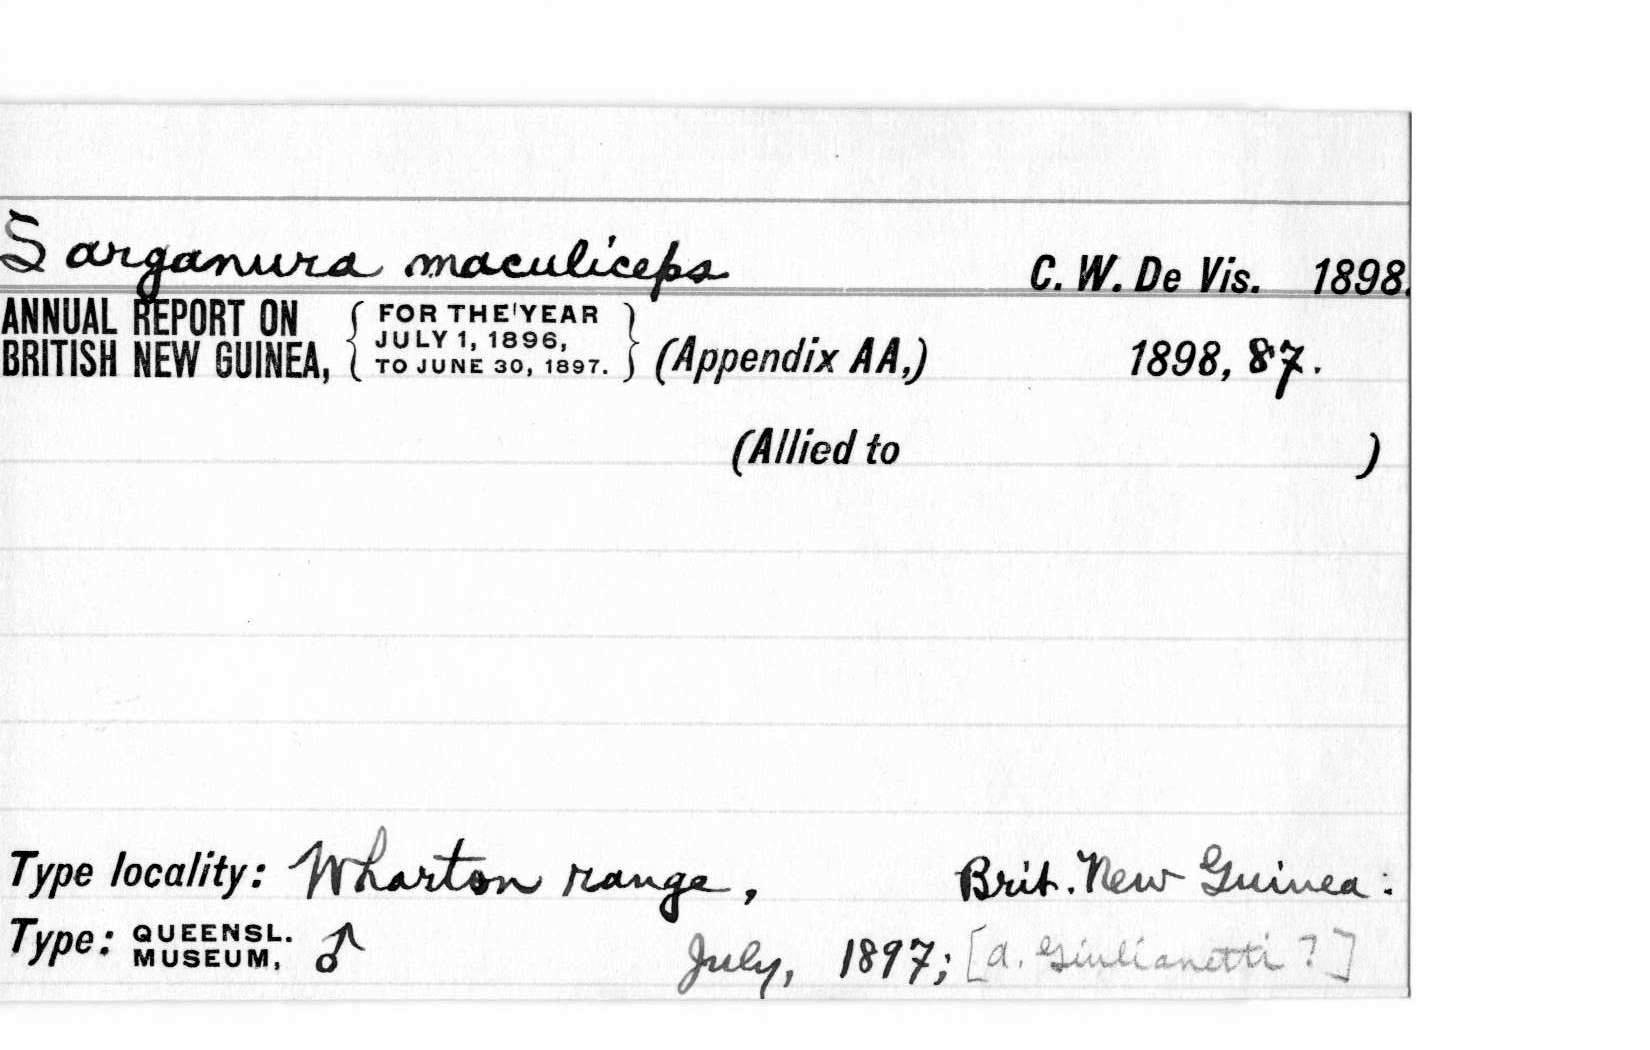 Sarganura maculiceps C. W. De Vis. 1898.
ANNUAL REPORT ON BRITISH NEW GUINEA, { FOR THE YEAR JULY 1, 1896, TO JUNE 30, 1897. } (Appendix AA,) 1898, 87.
(Allied to )
Type locality: Wharton range, Brit. New Guinea:
Type: QUEENSL. MUSEUM, ♂ July, 1897; [A. Giulianetti ?]